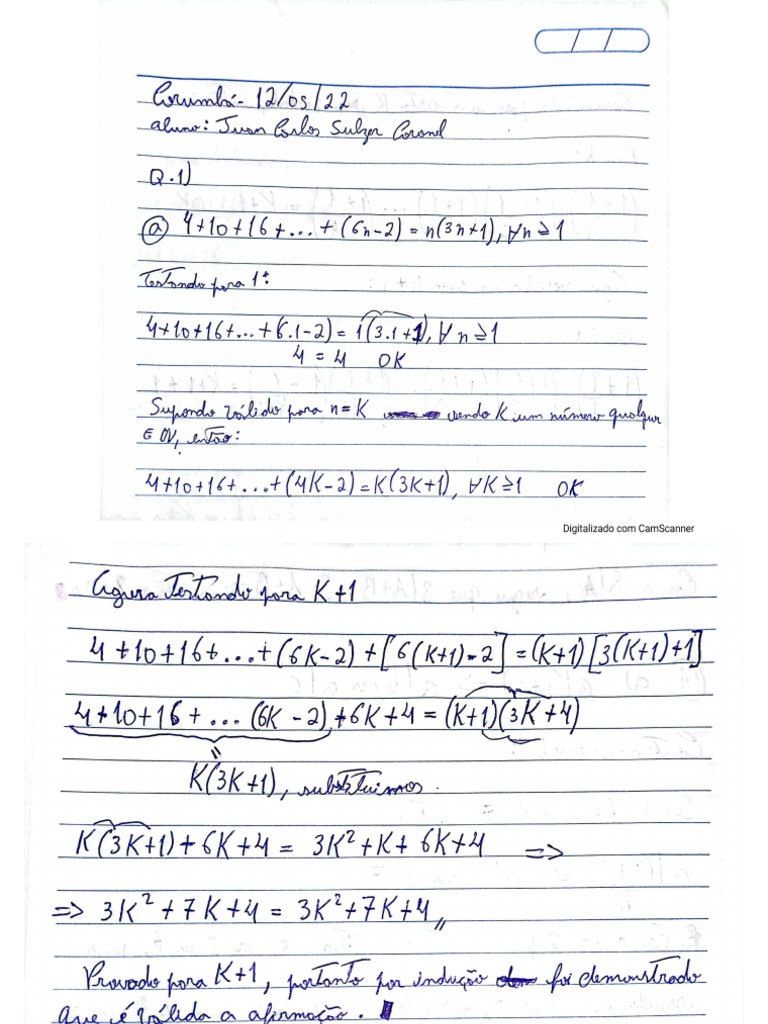 Corumbá - 12/05/22
aluno: Juan Carlos Sulzer Coronel
Q.1)
ⓐ 4+10+16+...+(6n-2)=n(3n+1), ∀n≥1
Testando para 1:
4+10+16+...+(6.1-2)=1(3.1+1), ∀n≥1
4 = 4 OK
Supondo válido para n=K sendo K um número qualquer
∈ ℕ, então:
4+10+16+...+(4K-2)=K(3K+1), ∀K≥1 OK
Digitalizado com CamScanner
Agora Testando para K+1
4+10+16+...+(6K-2)+[6(K+1)-2]=(K+1)[3(K+1)+1]
4+10+16+...(6K-2)+6K+4=(K+1)(3K+4)
K(3K+1), substituimos.
K(3K+1)+6K+4 = 3K²+K+6K+4 =>
=> 3K²+7K+4 = 3K²+7K+4,,
Provado para K+1, portanto por indução foi demonstrado
que é válida a afirmação.